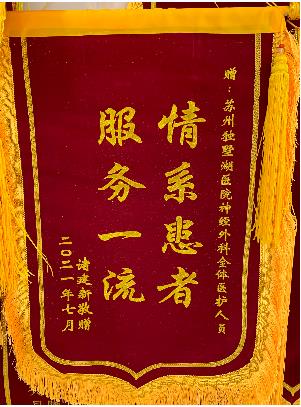 赠：苏州独墅湖医院神经外科全体医护人员
情系患者
服务一流
诸建新敬赠
二〇二一年七月